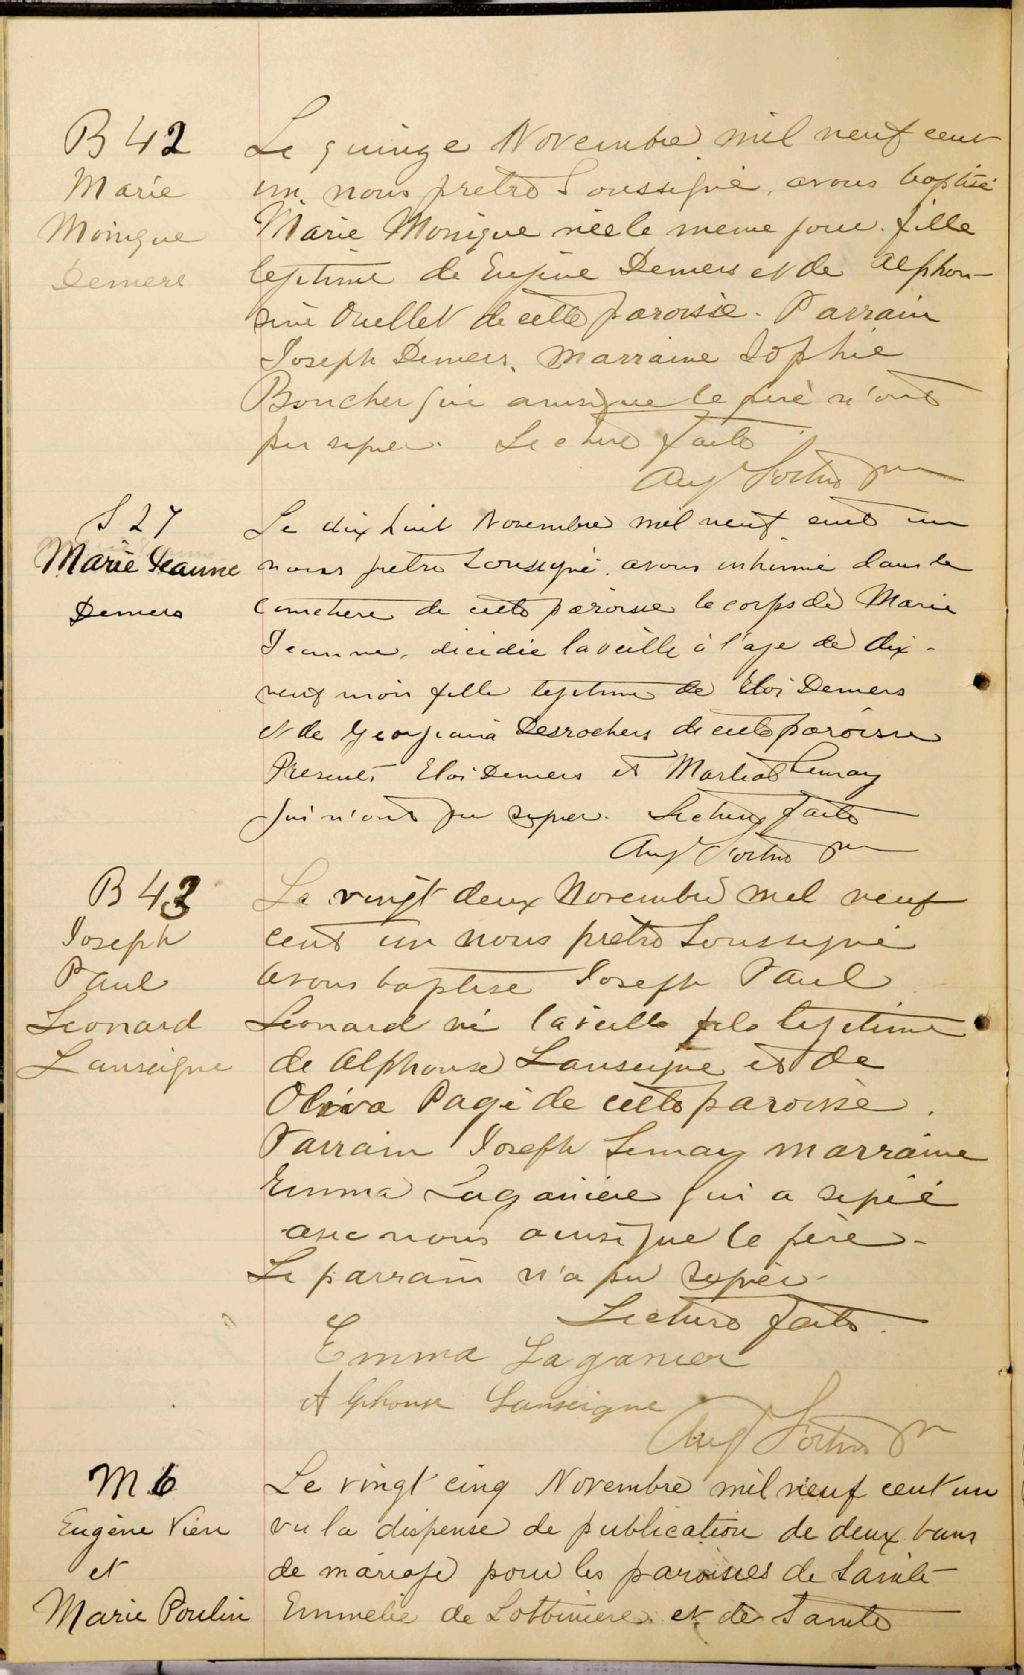 B 42
Marie
Monique
Demers
Le quinze Novembre mil neuf cent
un, nous prêtre Soussigné, avons baptisé
Marie Monique née le meme jour. fille
legitime de Eugène Demers et de Alphon-
sine Ouellet de cette paroisse. Parrain
Joseph Demers, Marraine Sophie
Boucher qui ainsi que le père n'ont
pu signer. Lecture faite.
Aug Ptre
S 27
Marie Jeanne
Demers
Le dix huit Novembre mil neuf cent un
nous prêtre Soussigné, avons inhumé dans le
cimetiere de cette paroisse le corps de Marie
Jeanne, décédée la veille à l'age de dix-
neuf mois fille legitime de Eloi Demers
et de Georgiana Desrochers de cette paroisse
Presents Eloi Demers et Martial Lemay
qui n'ont pu signer. Lecture faite
Aug Ptre
B 43
Joseph
Paul
Leonard
Lanseigne
Le vingt deux Novembre mil neuf
cent un nous prêtre Soussigné
avons baptisé Joseph Paul
Leonard né la veille fils legitime
de Alphonse Lanseigne et de
Oliva Pagé de cette paroisse.
Parrain Joseph Lemay marraine
Emma Laganière qui a signé
avec nous ainsi que le père-
Le parrain n'a pu signer-
Lecture faite.
Emma Laganier
Alphonse Lanseigne
Aug Ptre
M 6
Eugène Vien
et
Marie Poulin
Le vingt cinq Novembre mil neuf cent un
vu la dispense de publication de deux bans
de mariage pour les paroisses de Sainte
Emmelie de Lotbinière et de Sainte